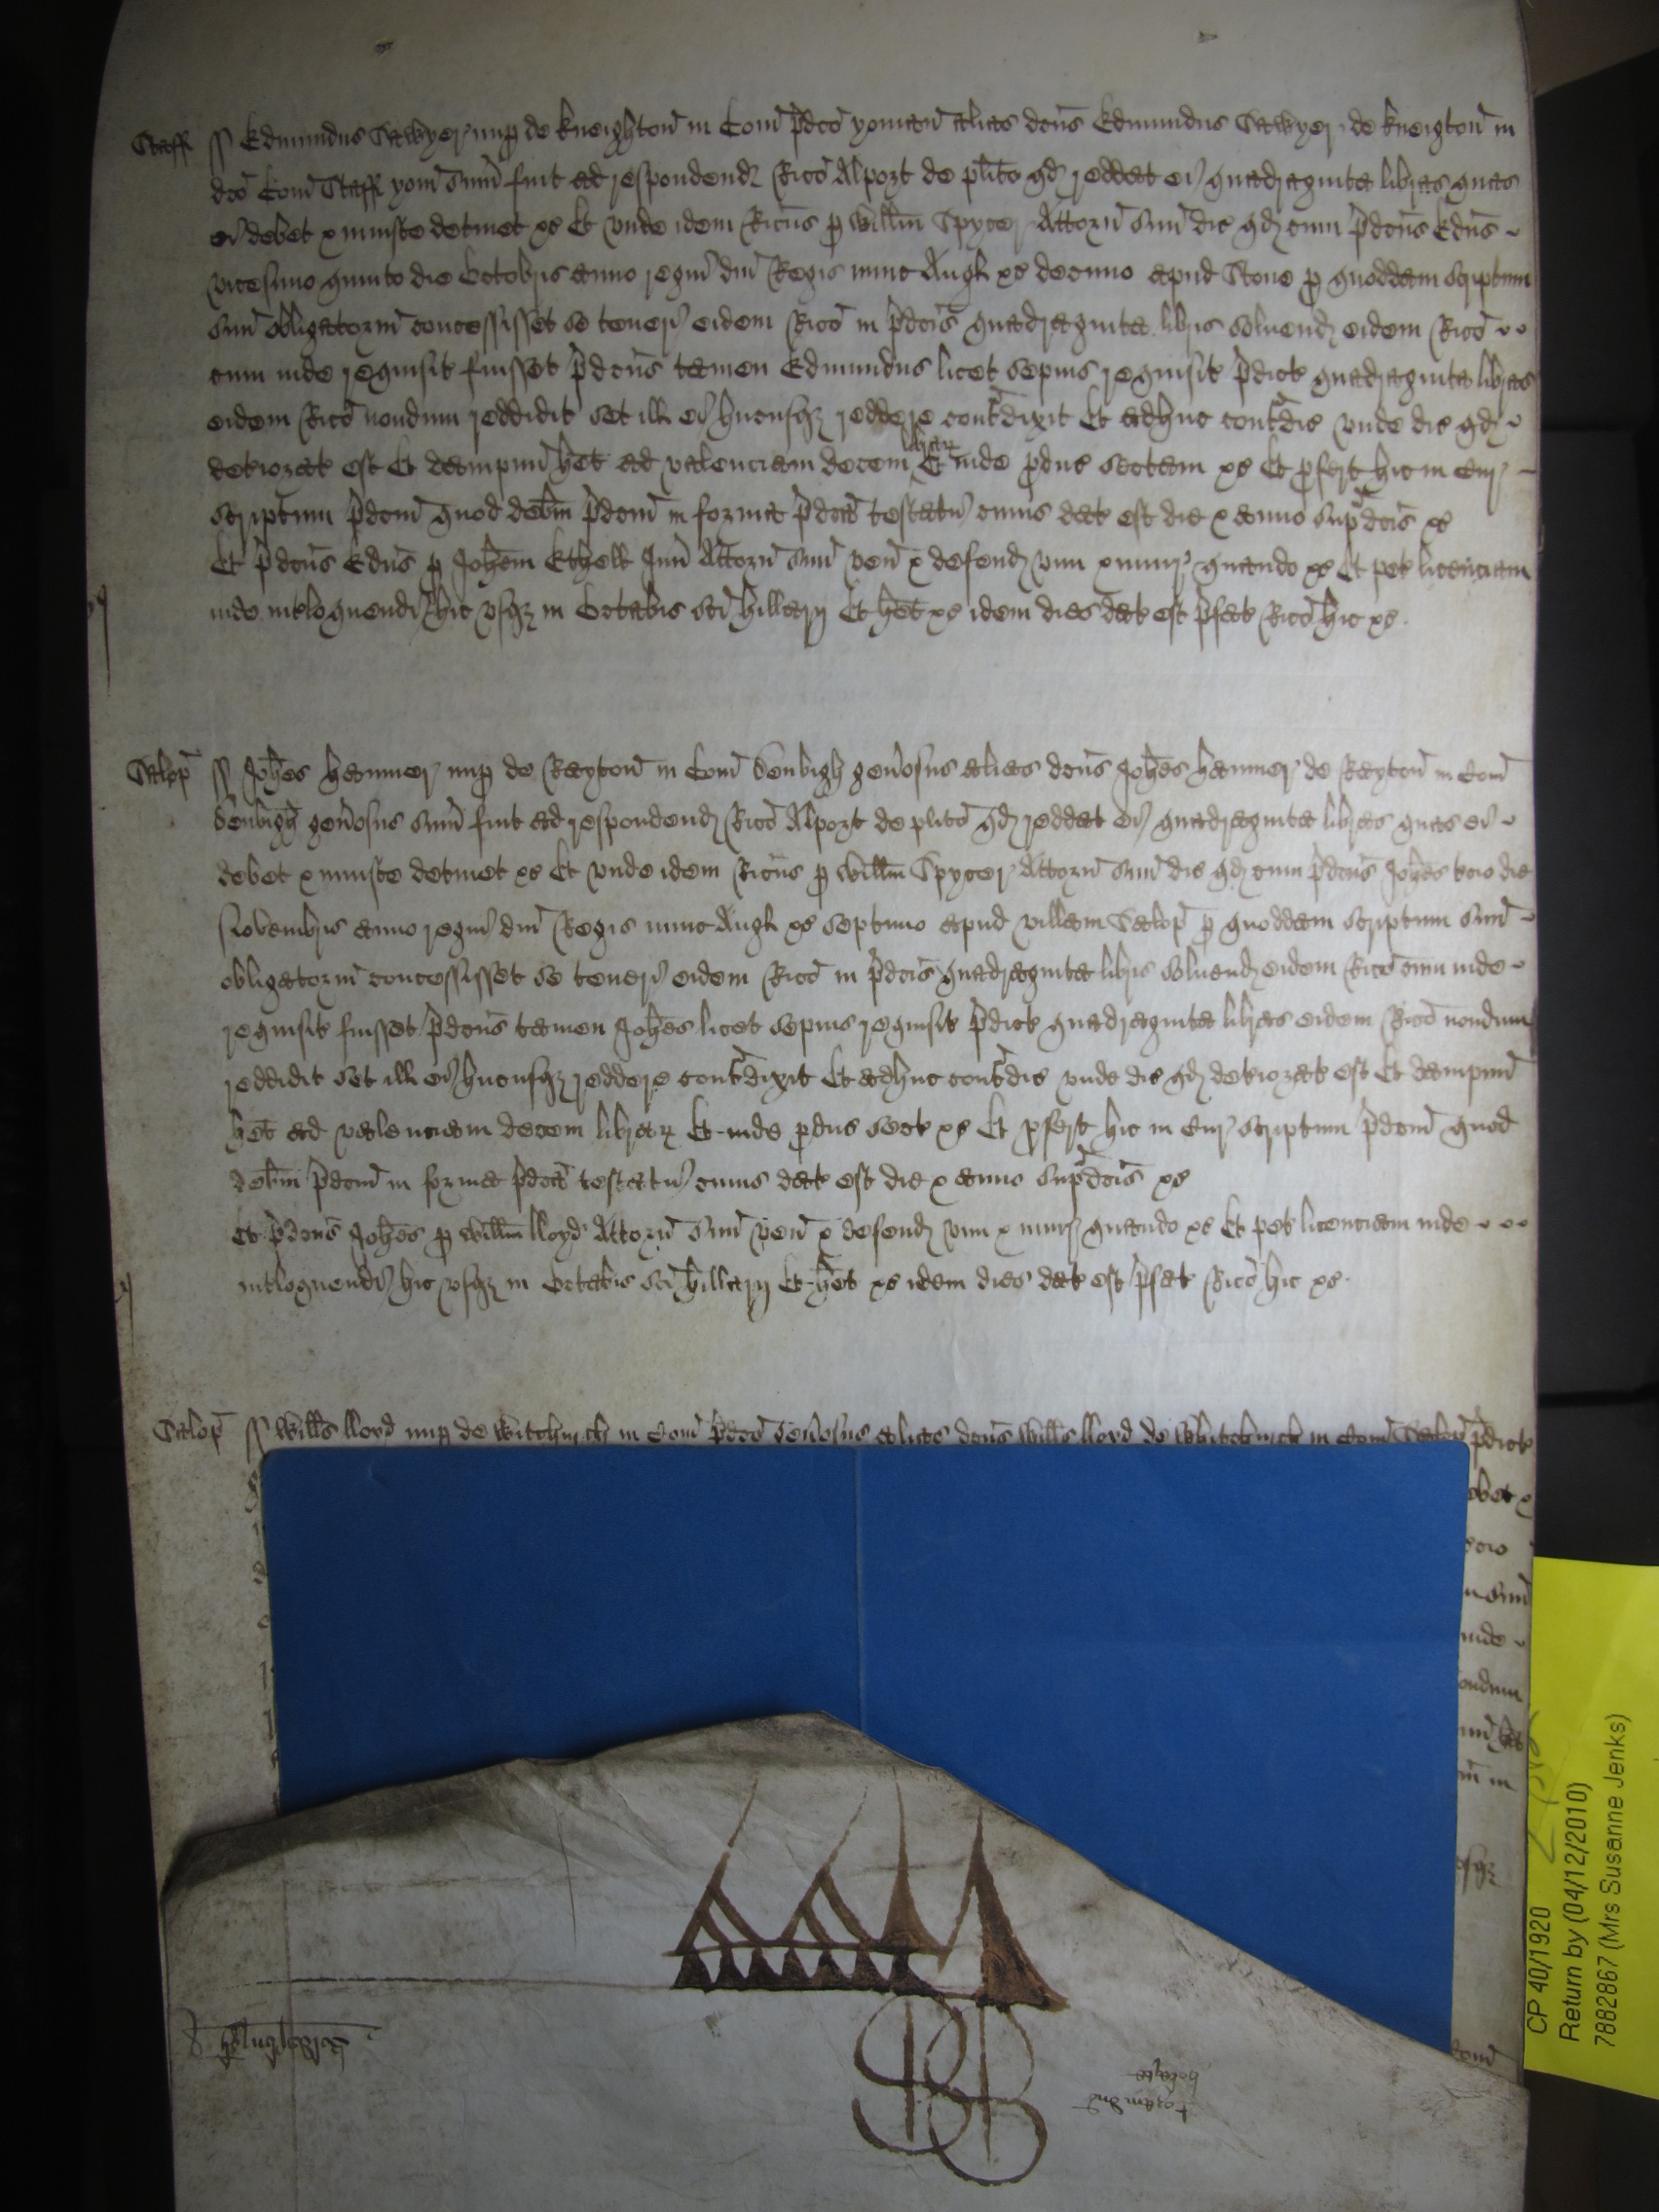 Staff ss Edmundus Sawyer nup de Kneighton in Com pdco yoman alias dcus Edmundus Sawyer de Kneigton in
dco Com Staff yom sum fuit ad respondend Rico Alport de plito qd reddat ei quadraginta libras quas
ei debet & iniuste detinet &c Et unde idem Ricus p Willm Spycer Attorn suu dic qd cum pdcus Edus
vicesimo quinto die Octobris anno regni dni Regis nunc Angl &c decimo apud Stone p quoddam scriptum
suu obligatorm concessisset se teneri eidem Rico in pdcis quadraginta libris solvend eidem Rico
cum inde requisit fuisset pdcus tamen Edmundus licet sepius requisit pdict quadraginta libras
eidem Rico nondum reddidit set ill ei hucusq reddere contdixit Et adhuc contdic unde dic qd
deteriorat est Et dampnu het ad valenciam decem librar Et inde pduc sectam &c Et pfert hic in Cur
scriptum pdcm quod debm pdcm in forma pdca testatur cuius dat est die & anno supdcis &c
Et pdcus Edus p Johem Ethell Jun Attorn suu ven & defend vim & iniur quando &c Et pet licenciam
inde intloquendi hic usq in Octabis Sci Hillarij Et het &c idem dies dat est pfat Rico hic &c
Salop ss Johes Hanmer nup de Rayton in Com Denbigh genosus alias dcus Johes Hanmer de Rayton in Com
Denbigh genosus sum fuit ad respondend Rico Alport de plito qd reddat ei quadraginta libras quas ei
debet & iniuste detinet &c Et unde idem Ricus p Willm Spycer Attorn suu dic qd cum pdcus Johes tcio die
Novembris anno regni dni Regis nunc Angl &c septimo apud villam Salop p quoddam scriptum suu
obligatorm concessisset se teneri eidem Rico in pdcis quadraginta libris solvend eidem Rico cum inde
requisit fuisset pdcus tamen Johes licet sepius requisit pdict quadraginta libras eidem Rico nondum
reddidit set ill ei hucusq reddere contdixit Et adhuc contdic unde dic qd deteriorat est Et dampnu
het ad valenciam decem librar Et inde pduc sect &c Et pfert hic in Cur scriptum pdcm quod
debm pdcm in forma pdca testatur cuius dat est die & anno supdcis &c
Et pdcus Johes p Willm lloyd Attorn suu ven & defend vim & iniur quando &c Et pet licenciam inde
intloquendi hic usq in Octabis Sci Hillarij Et het &c idem dies dat est pfat Rico hic &c
Salop ss Willus lloyd nup de Witchurch in Com pdco Genosus alias dcus Willus lloyd de Whitchurch in Com Salop pdict
ebet &
nde
ondum
CP 40/1920
Return by (04/12/2010)
7882867 (Mrs Susanne Jenks)